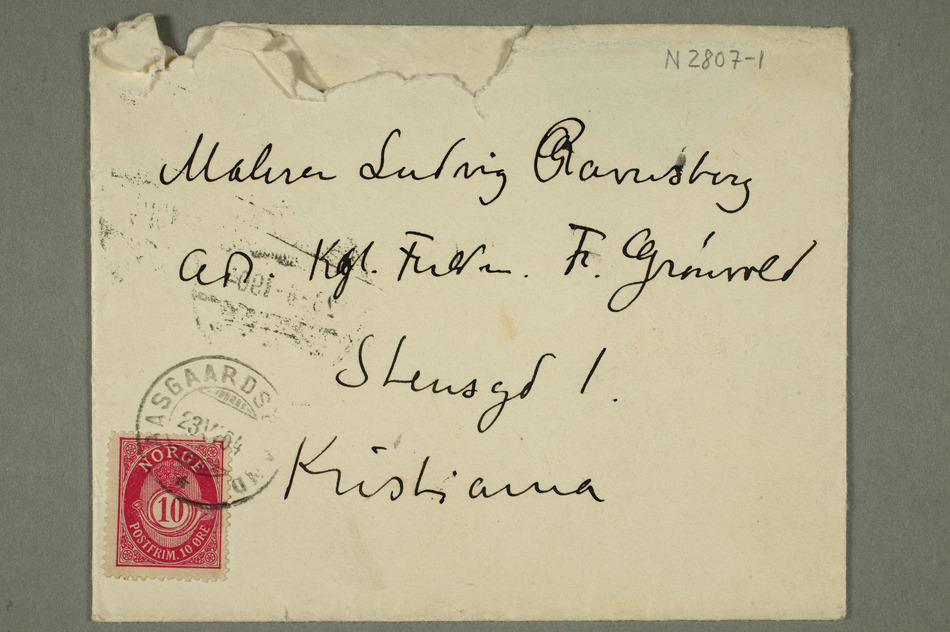 N 2807-1
Maleren Ludvig Ravensberg
adr. Kgl. Fuldm. Fr. Grönvold
Stensgd 1.
Kristiania
AASGAARDSTRAND
23 VI 04
NORGE
10
POSTFRIM. 10 ØRE